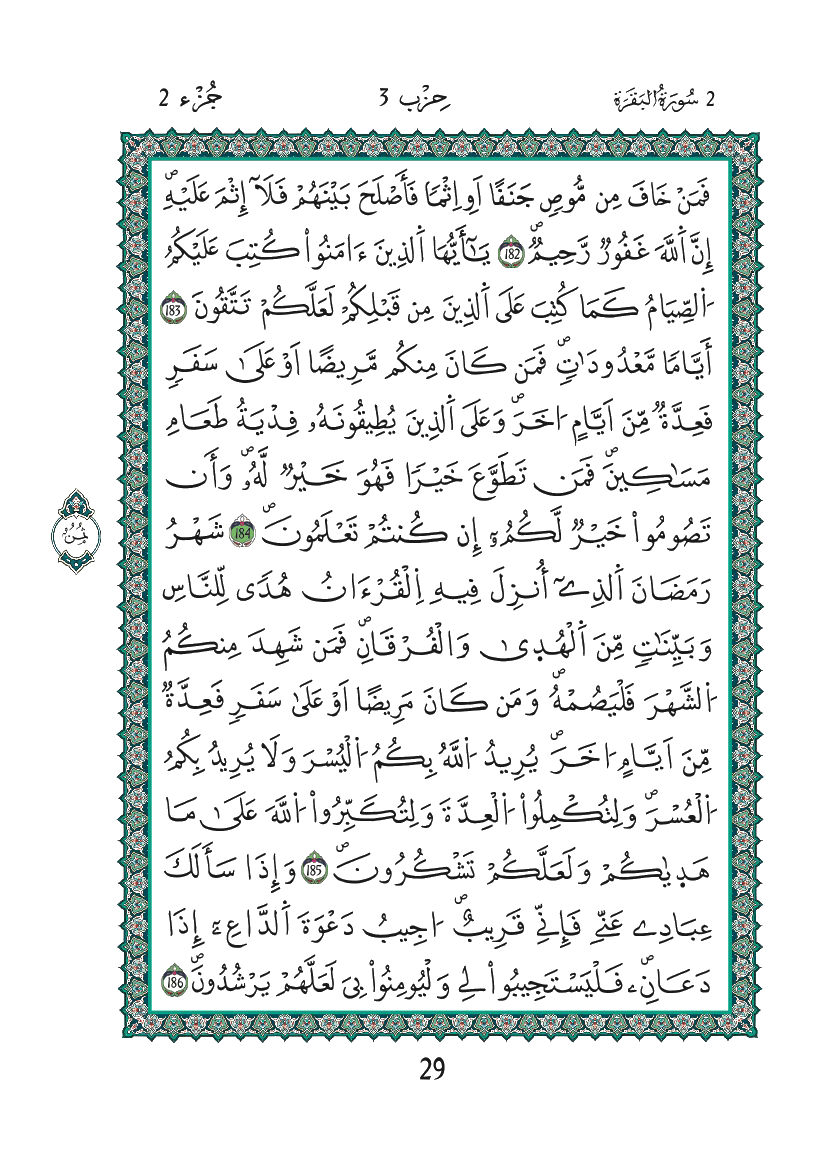 2 سُورَةُ الْبَقَرَةِ حِزْب 3 جُزْء 2
فَمَنْ خَافَ مِن مُّوصٖ جَنَفًا اَوِ اِثْمٗا فَأَصْلَحَ بَيْنَهُمْ فَلَآ إِثْمَ عَلَيْهِۖ
إِنَّ اَ۬للَّهَ غَفُورٞ رَّحِيمٞۖ 182 يَٰٓأَيُّهَا اَ۬لذِينَ ءَامَنُواْ كُتِبَ عَلَيْكُمُ
اُ۬لصِّيَامُ كَمَا كُتِبَ عَلَى اَ۬لذِينَ مِن قَبْلِكُمْ لَعَلَّكُمْ تَتَّقُونَ 183
أَيَّامٗا مَّعْدُودَٰتٖۖ فَمَن كَانَ مِنكُم مَّرِيضًا اَوْ عَلَىٰ سَفَرٖ
فَعِدَّةٞ مِّنَ اَيَّامٍ اُخَرَۖ وَعَلَى اَ۬لذِينَ يُطِيقُونَهُۥ فِدْيَةُ طَعَامِ
مَسَٰكِينَۖ فَمَن تَطَوَّعَ خَيْرٗا فَهُوَ خَيْرٞ لَّهُۥۖ وَأَن
تَصُومُواْ خَيْرٞ لَّكُمُۥٓ إِن كُنتُمْ تَعْلَمُونَۖ 184 شَهْرُ
رَمَضَانَ اَ۬لذِےٓ أُنزِلَ فِيهِ اِ۬لْقُرْءَانُ هُديٗ لِّلنَّاسِ
وَبَيِّنَٰتٖ مِّنَ اَ۬لْهُدۭيٰ وَالْفُرْقَانِۖ فَمَن شَهِدَ مِنكُمُ
اُ۬لشَّهْرَ فَلْيَصُمْهُۖ وَمَن كَانَ مَرِيضًا اَوْ عَلَىٰ سَفَرٖ فَعِدَّةٞ
مِّنَ اَيَّامٍ اُخَرَۖ يُرِيدُ اُ۬للَّهُ بِكُمُ اُ۬لْيُسْرَ وَلَا يُرِيدُ بِكُمُ
اُ۬لْعُسْرَۖ وَلِتُكْمِلُواْ اُ۬لْعِدَّةَ وَلِتُكَبِّرُواْ اُ۬للَّهَ عَلَىٰ مَا
هَدۭيٰكُمْ وَلَعَلَّكُمْ تَشْكُرُونَۖ 185 وَإِذَا سَأَلَكَ
عِبَادِے عَنِّے فَإِنِّے قَرِيبٌۖ اُجِيبُ دَعْوَةَ اَ۬لدَّاعِۦٓ إِذَا
دَعَانِۦۖ فَلْيَسْتَجِيبُواْ لِے وَلْيُومِنُواْ بِيَ لَعَلَّهُمْ يَرْشُدُونَۖ 186
ثُمُنُ
29